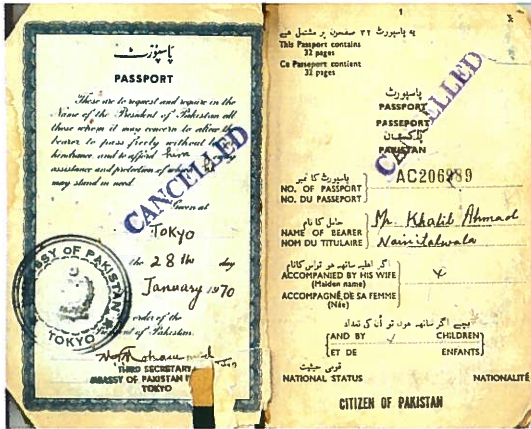 پاسپورٹ
PASSPORT
These are to request and require in the
Name of the President of Pakistan all
those whom it may concern to allow the
bearer to pass freely without let or
hindrance, and to afford him
assistance and protection of which
may stand in need.
Given at
Tokyo
the 28th day
January 1970
order of the
of Pakistan.
THIRD SECRETARY
EMBASSY OF PAKISTAN
TOKYO
CANCELLED
EMBASSY OF PAKISTAN
TOKYO
1
یہ پاسپورٹ ۳۲ صفحوں پر مشتمل ہے
This Passport contains
32 pages
Ce Passeport contient
32 pages
پاسپورٹ
PASSPORT
PASSEPORT
پاکستان
PAKISTAN
CANCELLED
پاسپورٹ کا نمبر
NO. OF PASSPORT
NO. DU PASSEPORT
AC206989
حامل کا نام
NAME OF BEARER
NOM DU TITULAIRE
Mr. Khalil Ahmad
Nainitalwala
اگر اہلیہ ساتھ ہو تو اس کا نام
ACCOMPANIED BY HIS WIFE
(Maiden name)
ACCOMPAGNÉ DE SA FEMME
(Née)
بچے اگر ساتھ ہوں تو اُن کی تعداد
AND BY CHILDREN
ET DE ENFANTS
قومی حیثیت
NATIONAL STATUS NATIONALITÉ
CITIZEN OF PAKISTAN